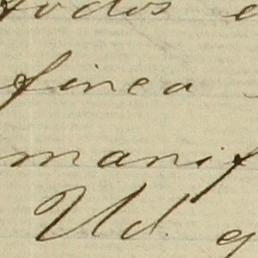 todos
finca
manif
Ud. q